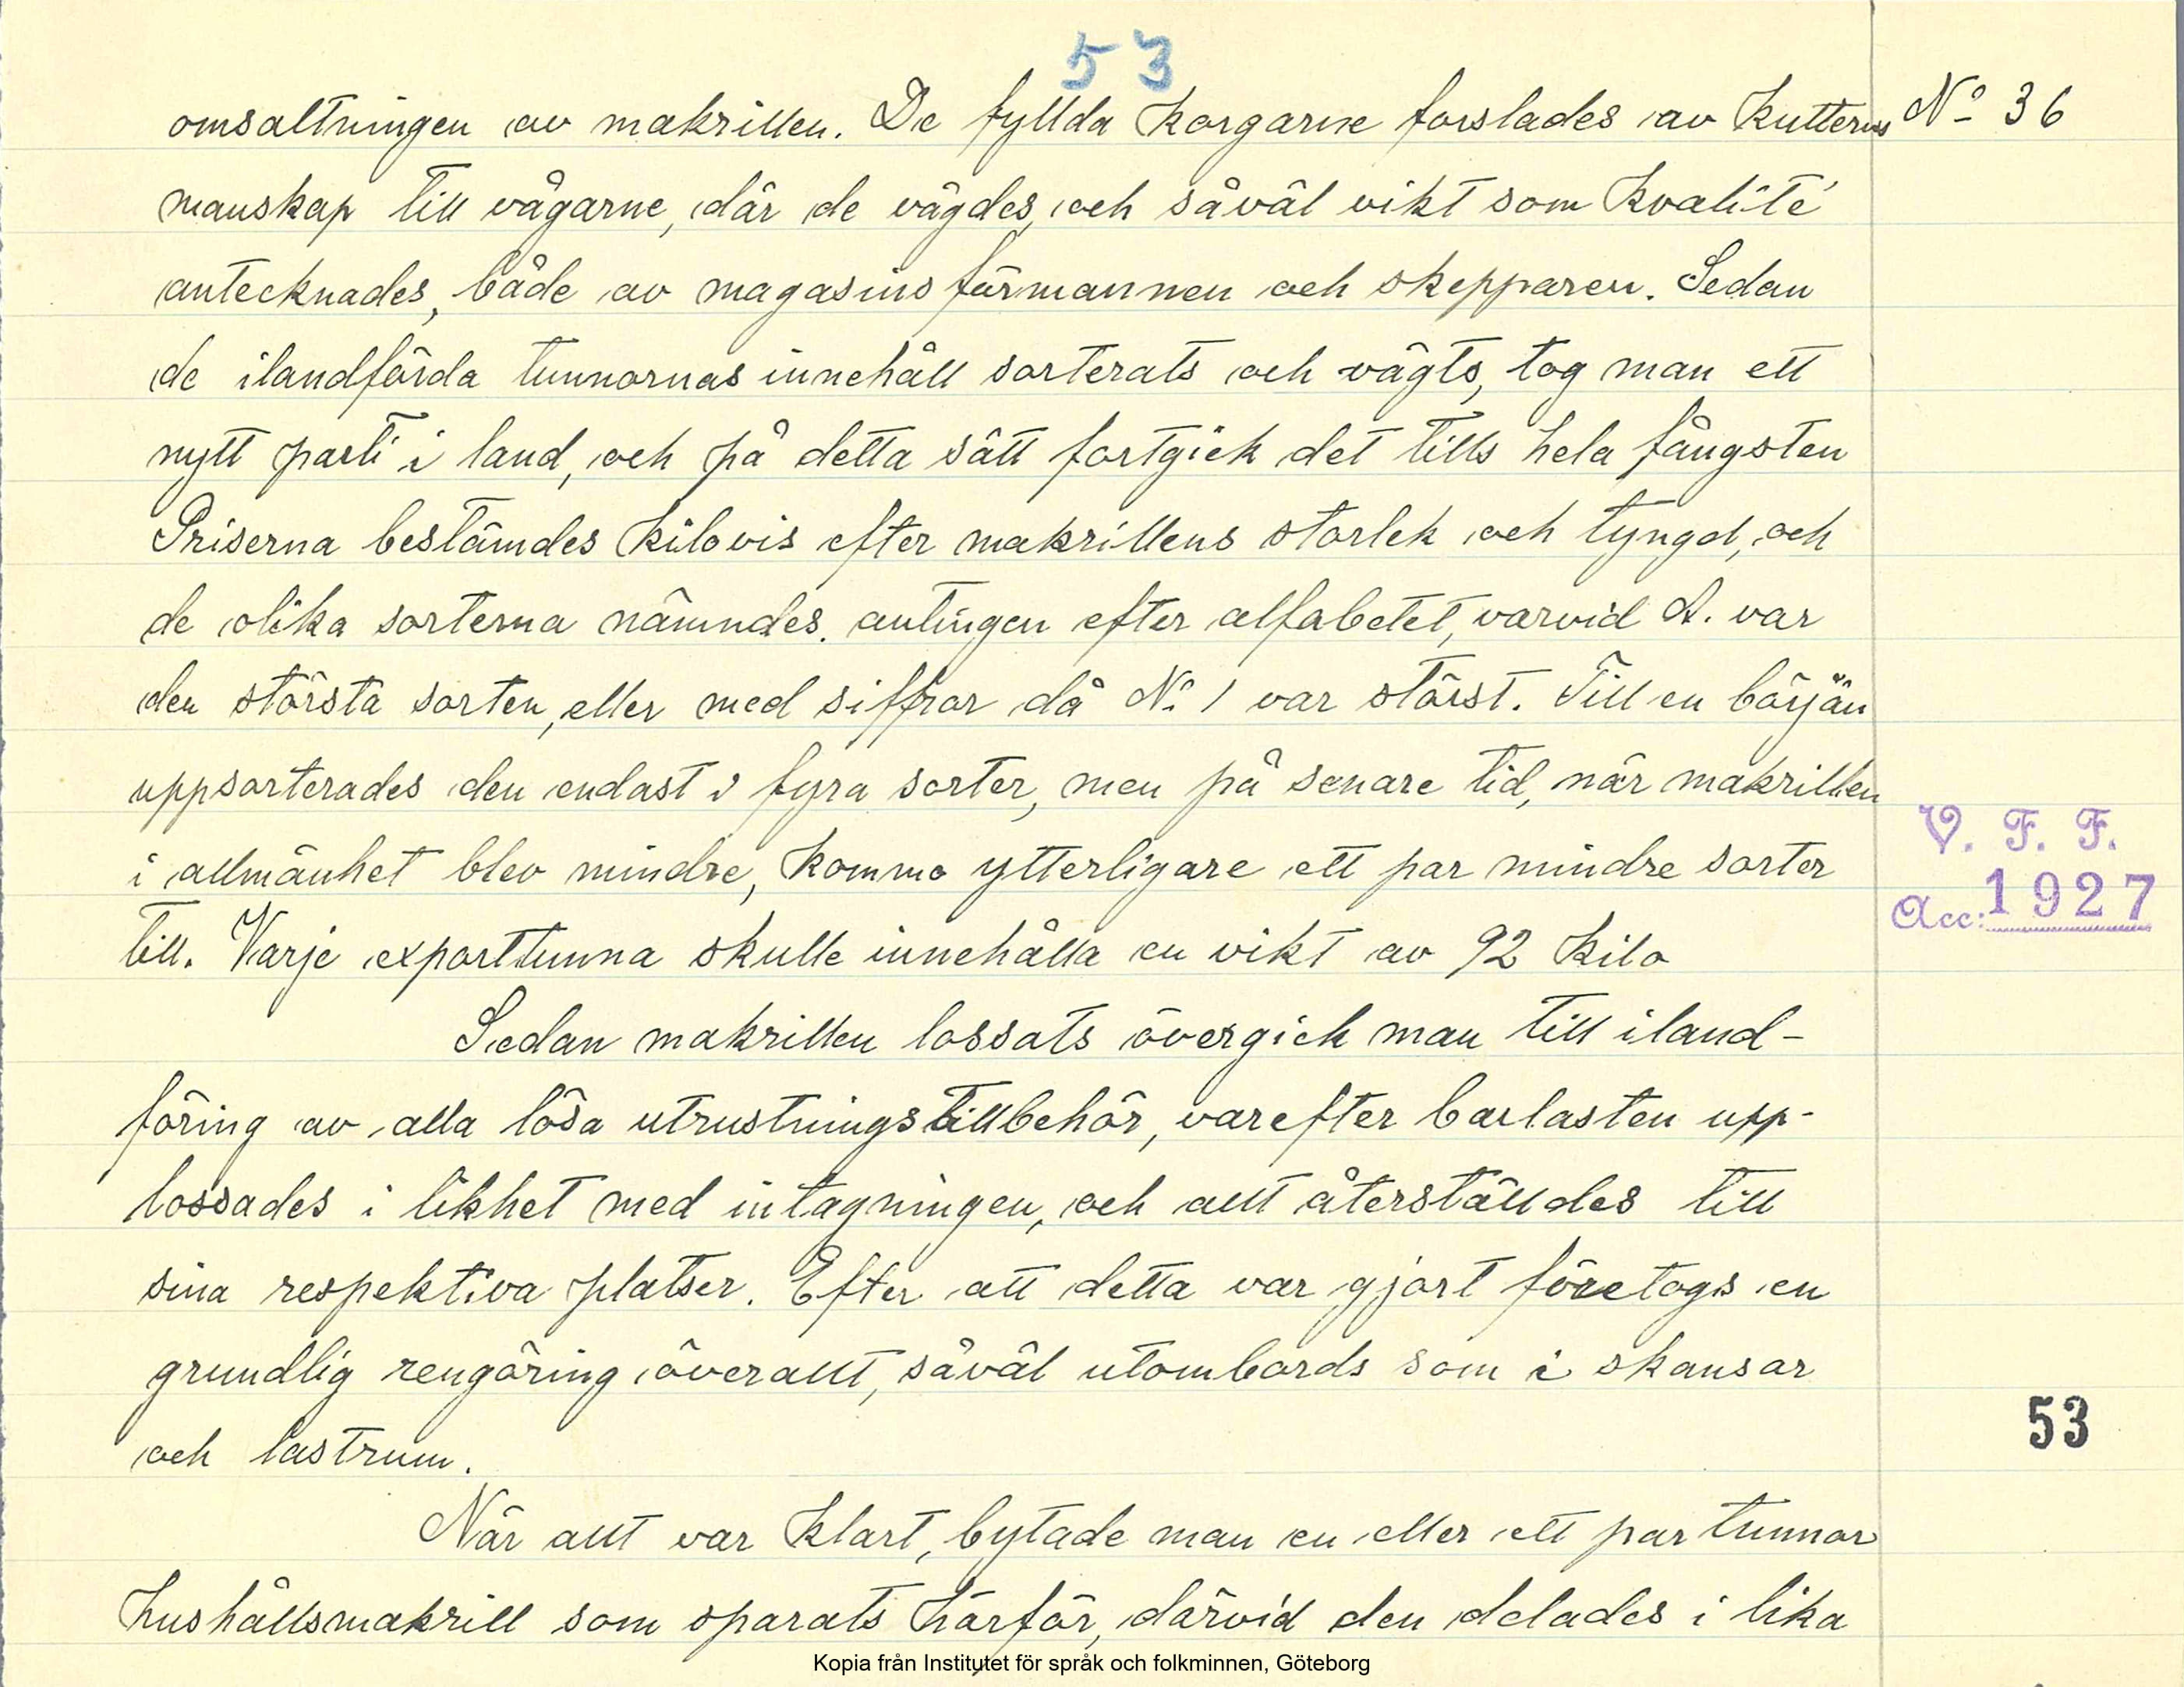 53
omsaltningen av makrillen. De fyllda korgarne forslades av kutterns
N° 36
manskap till vågarne, där de vägdes, och såväl vikt som kvalité
antecknades, både av magasinsförmannen och skepparen. Sedan
de ilandförda tunnornas innehåll sorterats och vägts, tog man ett
nytt parti i land, och på detta sätt fortgick det tills hela fångsten
Priserna bestämdes kilovis efter makrillens storlek och tyngd, och
de olika sorterna nämndes. antingen efter alfabetet, varvid A. var
den största sorten, eller med siffror då N° 1 var störst. Till en börjän
uppsorterades den endast i fyra sorter, men på senare tid, när makrillen
i allmänhet blev mindre, kommo ytterligare ett par mindre sorter
V. F. F.
Acc: 1927
till. Varje exporttunna skulle innehålla en vikt av 92 kilo
Sedan makrillen lossats övergick man till iland-
föring av alla lösa utrustningstillbehör, varefter barlasten upp-
lossades i likhet med intagningen, och allt återställdes till
sina respektiva platser. Efter att detta var gjort företogs en
grundlig rengöring överallt, såväl utombords som i skansar
53
och lastrum.
När allt var klart, bytade man en eller ett par tunnor
hushållsmakrill som sparats härför, därvid den delades i lika
Kopia från Institutet för språk och folkminnen, Göteborg